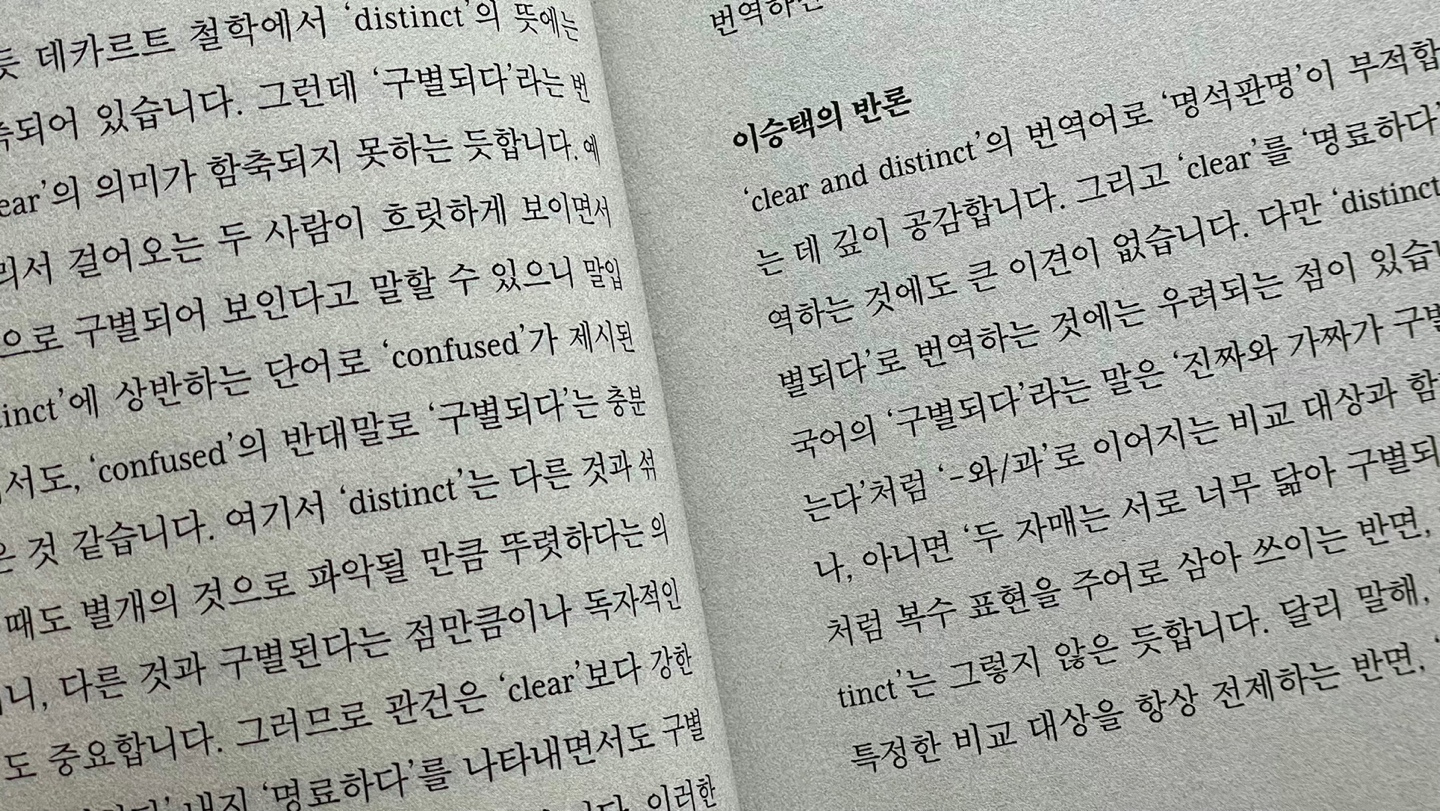 데카르트 철학에서 ‘distinct’의 뜻에는
되어 있습니다. 그런데 ‘구별되다’라는 번
ear’의 의미가 함축되지 못하는 듯합니다. 예
서 걸어오는 두 사람이 흐릿하게 보이면서
으로 구별되어 보인다고 말할 수 있으니 말입
inct’에 상반하는 단어로 ‘confused’가 제시된
서도, ‘confused’의 반대말로 ‘구별되다’는 충분
것 같습니다. 여기서 ‘distinct’는 다른 것과 섞
때도 별개의 것으로 파악될 만큼 뚜렷하다는 의
니, 다른 것과 구별된다는 점만큼이나 독자적인
도 중요합니다. 그러므로 관건은 ‘clear’보다 강한
내지 ‘명료하다’를 나타내면서도 구별
이러한
번역하는
이승택의 반론
‘clear and distinct’의 번역어로 ‘명석판명’이 부적합
는 데 깊이 공감합니다. 그리고 ‘clear’를 ‘명료하다’
역하는 것에도 큰 이견이 없습니다. 다만 ‘distinct
별되다’로 번역하는 것에는 우려되는 점이 있습
국어의 ‘구별되다’라는 말은 ‘진짜와 가짜가 구별
는다’처럼 ‘-와/과’로 이어지는 비교 대상과 함
나, 아니면 ‘두 자매는 서로 너무 닮아 구별되
처럼 복수 표현을 주어로 삼아 쓰이는 반면,
tinct’는 그렇지 않은 듯합니다. 달리 말해,
특정한 비교 대상을 항상 전제하는 반면,